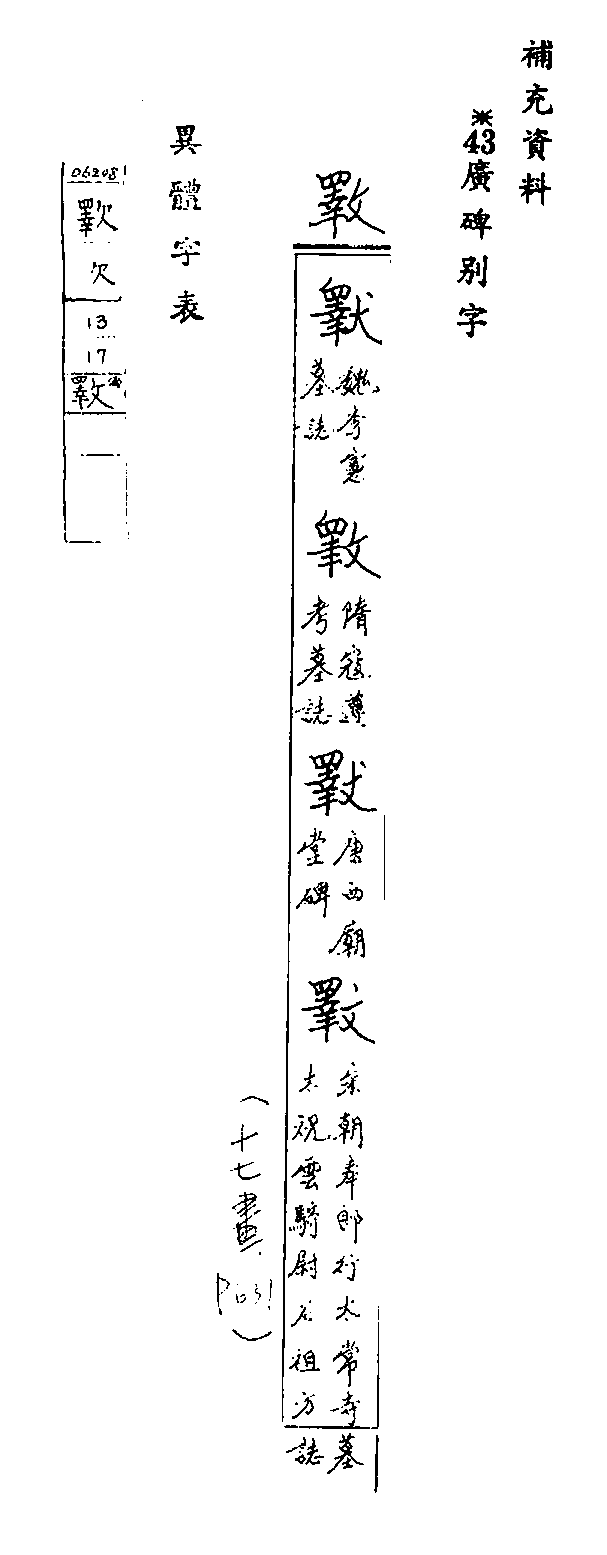 補充資料
※43廣碑別字
斁
魏李蕤
墓誌
斁
隋寇遵
考墓誌
唐西廟
堂碑
宋朝奉郎行太常寺
太祝雲騎尉石祖方
墓
誌
(十七畫
P631)
異體字表
06208
欠
13
17
斁